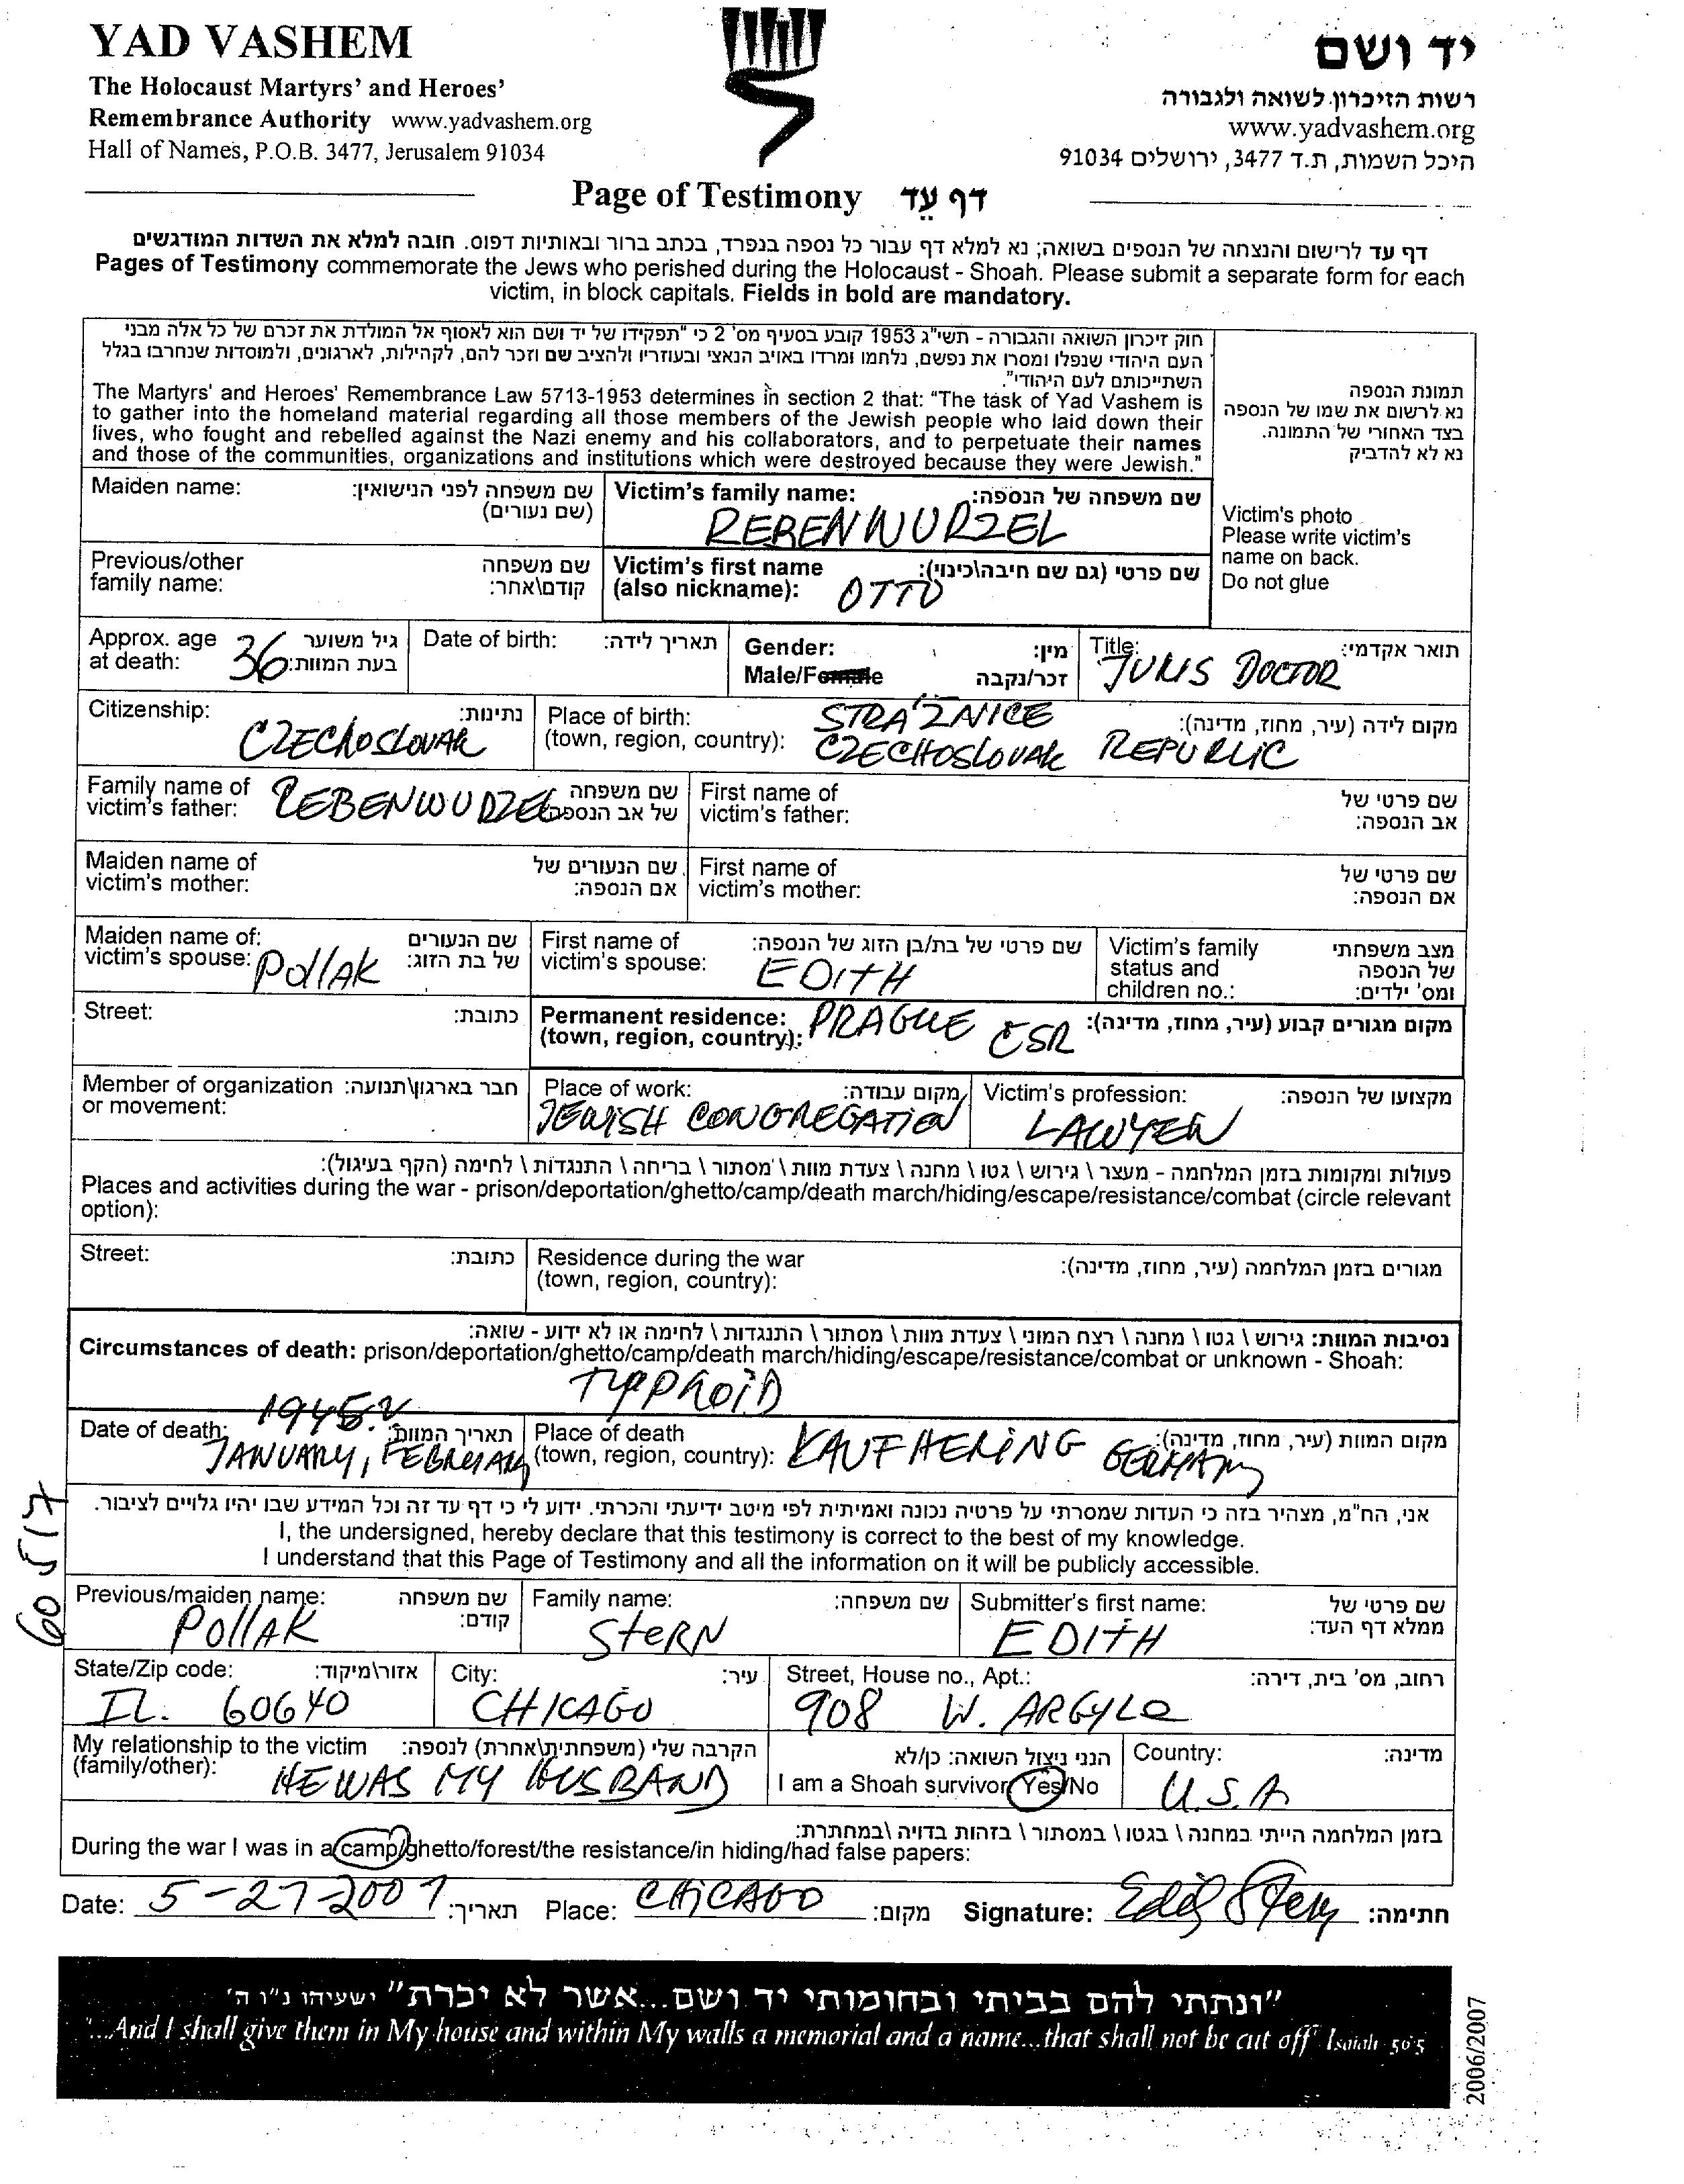 YAD VASHEM
The Holocaust Martyrs' and Heroes'
Remembrance Authority www.yadvashem.org
Hall of Names, P.O.B. 3477, Jerusalem 91034
יד ושם
רשות הזיכרון לשואה ולגבורה
www.yadvashem.org
היכל השמות, ת.ד 3477, ירושלים 91034
Page of Testimony דף עֵד
דף עד לרישום והנצחה של הנספים בשואה; נא למלא דף עבור כל נספה בנפרד, בכתב ברור ובאותיות דפוס. חובה למלא את השדות המודגשים
Pages of Testimony commemorate the Jews who perished during the Holocaust - Shoah. Please submit a separate form for each
victim, in block capitals. Fields in bold are mandatory.
חוק זיכרון השואה והגבורה - תשי"ג 1953 קובע בסעיף מס' 2 כי "תפקידו של יד ושם הוא לאסוף אל המולדת את זכרם של כל אלה מבני
העם היהודי שנפלו ומסרו את נפשם, נלחמו ומרדו באויב הנאצי ובעוזריו ולהציב שם וזכר להם, לקהילות, לארגונים, ולמוסדות שנחרבו בגלל
השתייכותם לעם היהודי".
The Martyrs' and Heroes' Remembrance Law 5713-1953 determines in section 2 that: "The task of Yad Vashem is
to gather into the homeland material regarding all those members of the Jewish people who laid down their
lives, who fought and rebelled against the Nazi enemy and his collaborators, and to perpetuate their names
and those of the communities, organizations and institutions which were destroyed because they were Jewish."
תמונת הנספה
נא לרשום את שמו של הנספה
בצד האחורי של התמונה.
נא לא להדביק
Victim's photo
Please write victim's
name on back.
Do not glue
Maiden name: שם משפחה לפני הנישואין:
(שם נעורים)
Victim's family name: שם משפחה של הנספה:
REBENWURZEL
Previous/other שם משפחה
family name: קודם\אחר:
Victim's first name שם פרטי (גם שם חיבה\כינוי):
(also nickname): OTTO
Approx. age 36 גיל משוער
at death: בעת המוות:
Date of birth: תאריך לידה:
Gender: מין:
Male/Female זכר/נקבה
Title: תואר אקדמי:
JURIS DOCTOR
Citizenship: נתינות:
CZECHOSLOVAK
Place of birth: STRÁŽNICE מקום לידה (עיר, מחוז, מדינה):
(town, region, country): CZECHOSLOVAK REPUBLIC
Family name of שם משפחה
victim's father: REBENWURZEL של אב הנספה:
First name of שם פרטי של
victim's father: אב הנספה:
Maiden name of שם הנעורים של
victim's mother: אם הנספה:
First name of שם פרטי של
victim's mother: אם הנספה:
Maiden name of: שם הנעורים
victim's spouse: POllAK של בת הזוג:
First name of שם פרטי של בת/בן הזוג של הנספה:
victim's spouse: EDITH
Victim's family מצב משפחתי
status and של הנספה
children no.: ומס' ילדים:
Street: כתובת:
Permanent residence: PRAGUE ČSR מקום מגורים קבוע (עיר, מחוז, מדינה):
(town, region, country):
Member of organization חבר בארגון\תנועה:
or movement:
Place of work: מקום עבודה:
JEWISH CONGREGATION
Victim's profession: מקצועו של הנספה:
LAWYER
פעולות ומקומות בזמן המלחמה - מעצר \ גירוש \ גטו \ מחנה \ צעדת מוות \ מסתור \ בריחה \ התנגדות \ לחימה (הקף בעיגול):
Places and activities during the war - prison/deportation/ghetto/camp/death march/hiding/escape/resistance/combat (circle relevant
option):
Street: כתובת:
Residence during the war מגורים בזמן המלחמה (עיר, מחוז, מדינה):
(town, region, country):
נסיבות המוות: גירוש \ גטו \ מחנה \ רצח המוני \ צעדת מוות \ מסתור \ התנגדות \ לחימה או לא ידוע - שואה:
Circumstances of death: prison/deportation/ghetto/camp/death march/hiding/escape/resistance/combat or unknown - Shoah:
TYPHOID
1945.?
Date of death: תאריך המוות:
JANUARY, FEBRUARY
Place of death מקום המוות (עיר, מחוז, מדינה):
(town, region, country): KAUFHERING GERMANY
אני, הח"מ, מצהיר בזה כי העדות שמסרתי על פרטיה נכונה ואמיתית לפי מיטב ידיעתי והכרתי. ידוע לי כי דף עד זה וכל המידע שבו יהיו גלויים לציבור.
I, the undersigned, hereby declare that this testimony is correct to the best of my knowledge.
I understand that this Page of Testimony and all the information on it will be publicly accessible.
Previous/maiden name: שם משפחה
POllAK קודם:
Family name: שם משפחה:
SteRN
Submitter's first name: שם פרטי של
EDITH ממלא דף העד:
State/Zip code: אזור\מיקוד:
IL. 60640
City: עיר:
CHICAGO
Street, House no., Apt.: רחוב, מס' בית, דירה:
908 W. ARGYLe
My relationship to the victim הקרבה שלי (משפחתית\אחרת) לנספה:
(family/other): HE WAS MY HUSBAND
הנני ניצול השואה: כן/לא
I am a Shoah survivor Yes/No
Country: מדינה:
U.S.A
בזמן המלחמה הייתי במחנה \ בגטו \ במסתור \ בזהות בדויה \במחתרת:
During the war I was in a camp/ghetto/forest/the resistance/in hiding/had false papers:
Date: 5-27-2007 תאריך: Place: CHICAGO מקום: Signature: Edith Stern חתימה:
"ונתתי להם בביתי ובחומותי יד ושם...אשר לא יכרת" ישעיהו נ"ו ה'
"...And I shall give them in My house and within My walls a memorial and a name...that shall not be cut off" Isaiah 56:5
2006/2007